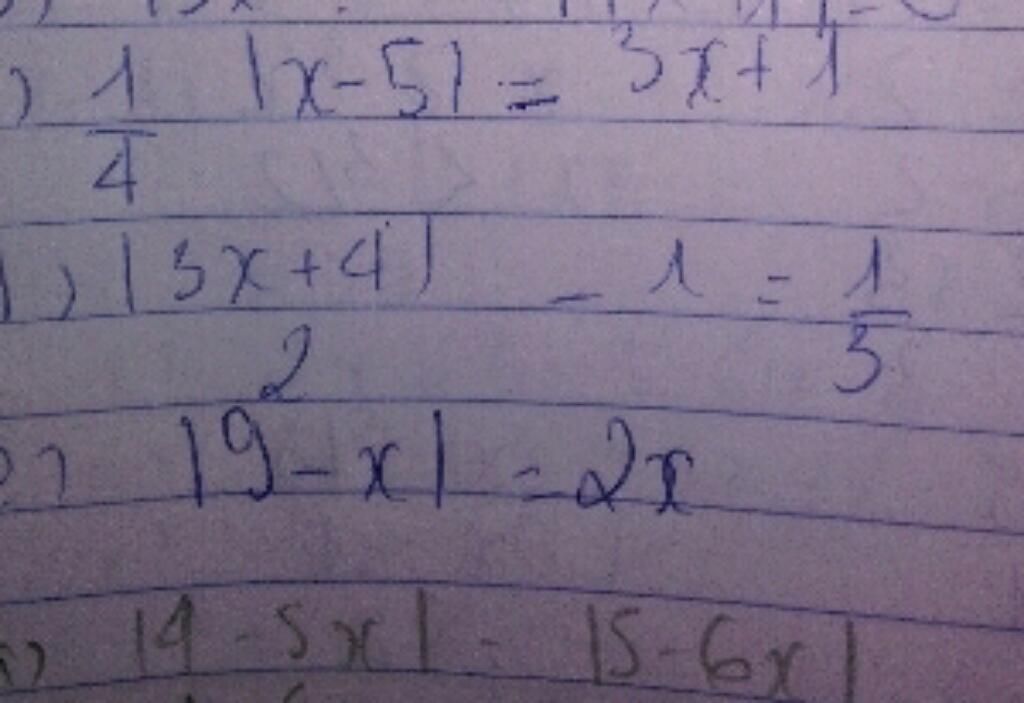 ) 1/4 |x-5| = 3x+1
) |3x+4|/2 - 1 = 1/3
) |9-x| = 2x
) |4-5x| = |5-6x|